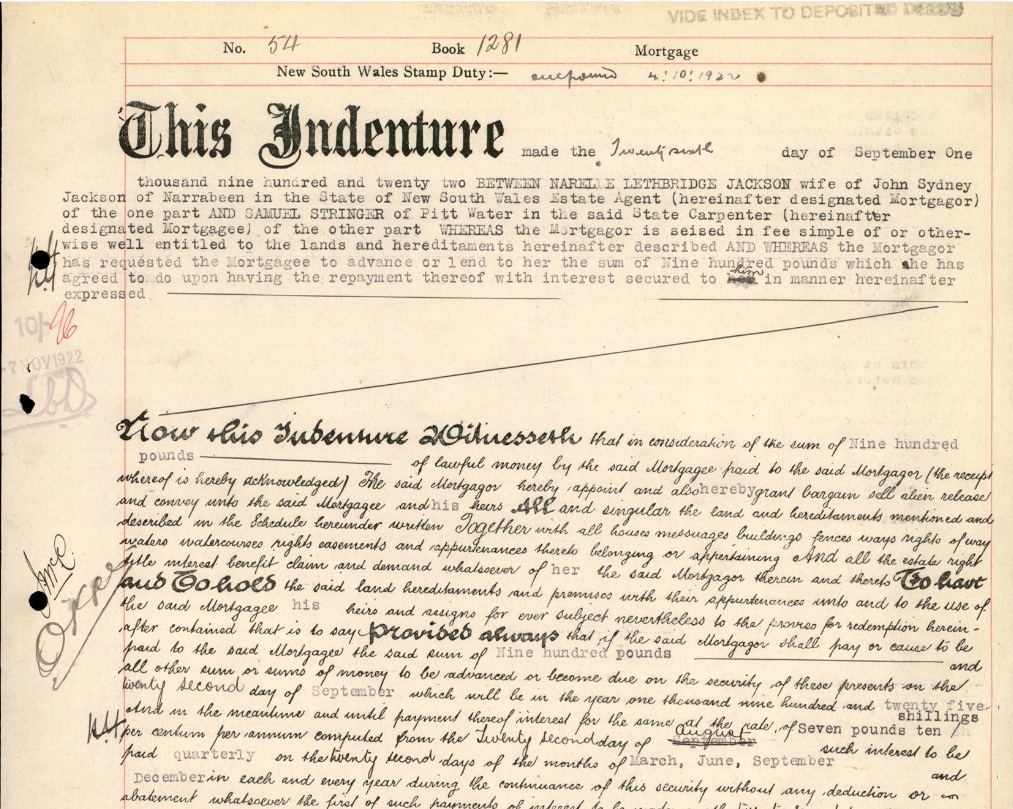 VIDE INDEX TO DEPOSITED DEEDS
No. 54 Book 1281 Mortgage
New South Wales Stamp Duty:— one pound 4.10.1922
This Indenture made the Twenty sixth day of September One
thousand nine hundred and twenty two BETWEEN NARELLE LETHBRIDGE JACKSON wife of John Sydney
Jackson of Narrabeen in the State of New South Wales Estate Agent (hereinafter designated Mortgagor)
of the one part AND SAMUEL STRINGER of Pitt Water in the said State Carpenter (hereinafter
designated Mortgagee) of the other part WHEREAS the Mortgagor is seised in fee simple of or other-
wise well entitled to the lands and hereditaments hereinafter described AND WHEREAS the Mortgagor
has requested the Mortgagee to advance or lend to her the sum of Nine hundred pounds which he has
agreed to do upon having the repayment thereof with interest secured to him in manner hereinafter
expressed
10/-
-7 NOV 1922
Now this Indenture Witnesseth that in consideration of the sum of Nine hundred
pounds of lawful money by the said Mortgagee paid to the said Mortgagor (the receipt
whereof is hereby acknowledged) The said Mortgagor hereby appoint and also hereby grant bargain sell alien release
and convey unto the said Mortgagee and his heirs All and singular the land and hereditaments mentioned and
described in the Schedule hereunder written Together with all houses messuages buildings fences ways rights of way
waters watercourses rights easements and appurtenances thereto belonging or appertaining And all the estate right
title interest benefit claim and demand whatsoever of her the said Mortgagor therein and thereto To have
and To hold the said land hereditaments and premises with their appurtenances unto and to the use of
the said Mortgagee his heirs and assigns for ever subject nevertheless to the proviso for redemption herein-
after contained that is to say Provided always that if the said Mortgagor shall pay or cause to be
paid to the said Mortgagee the said sum of Nine hundred pounds and
all other sum or sums of money to be advanced or become due on the security of these presents on the
twenty second day of September which will be in the year one thousand nine hundred and twenty five
And in the meantime and until payment thereof interest for the same at the rate of Seven pounds ten shillings
per centum per annum computed from the Twenty second day of September August such interest to be
paid quarterly on the twenty second days of the months of March, June, September and
December in each and every year during the continuance of this security without any deduction or
abatement whatsoever the first of such payments of interest to be made on the